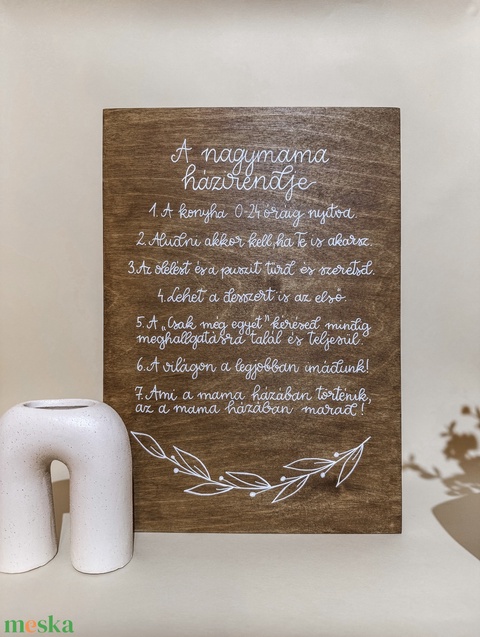 A nagymama
házirendje
1. A konyha 0-24 óráig nyitva.
2. Aludni akkor kell, ha Te is akarsz.
3. Az ölelést és a puszit tűrd és szeretsd.
4. Lehet a desszert is az első.
5. A „Csak még egyet" kérésed mindig
meghallgatásra talál és teljesül.
6. A világon a legjobban imádunk!
7. Ami a mama házában történik,
az a mama házában marad!
meska